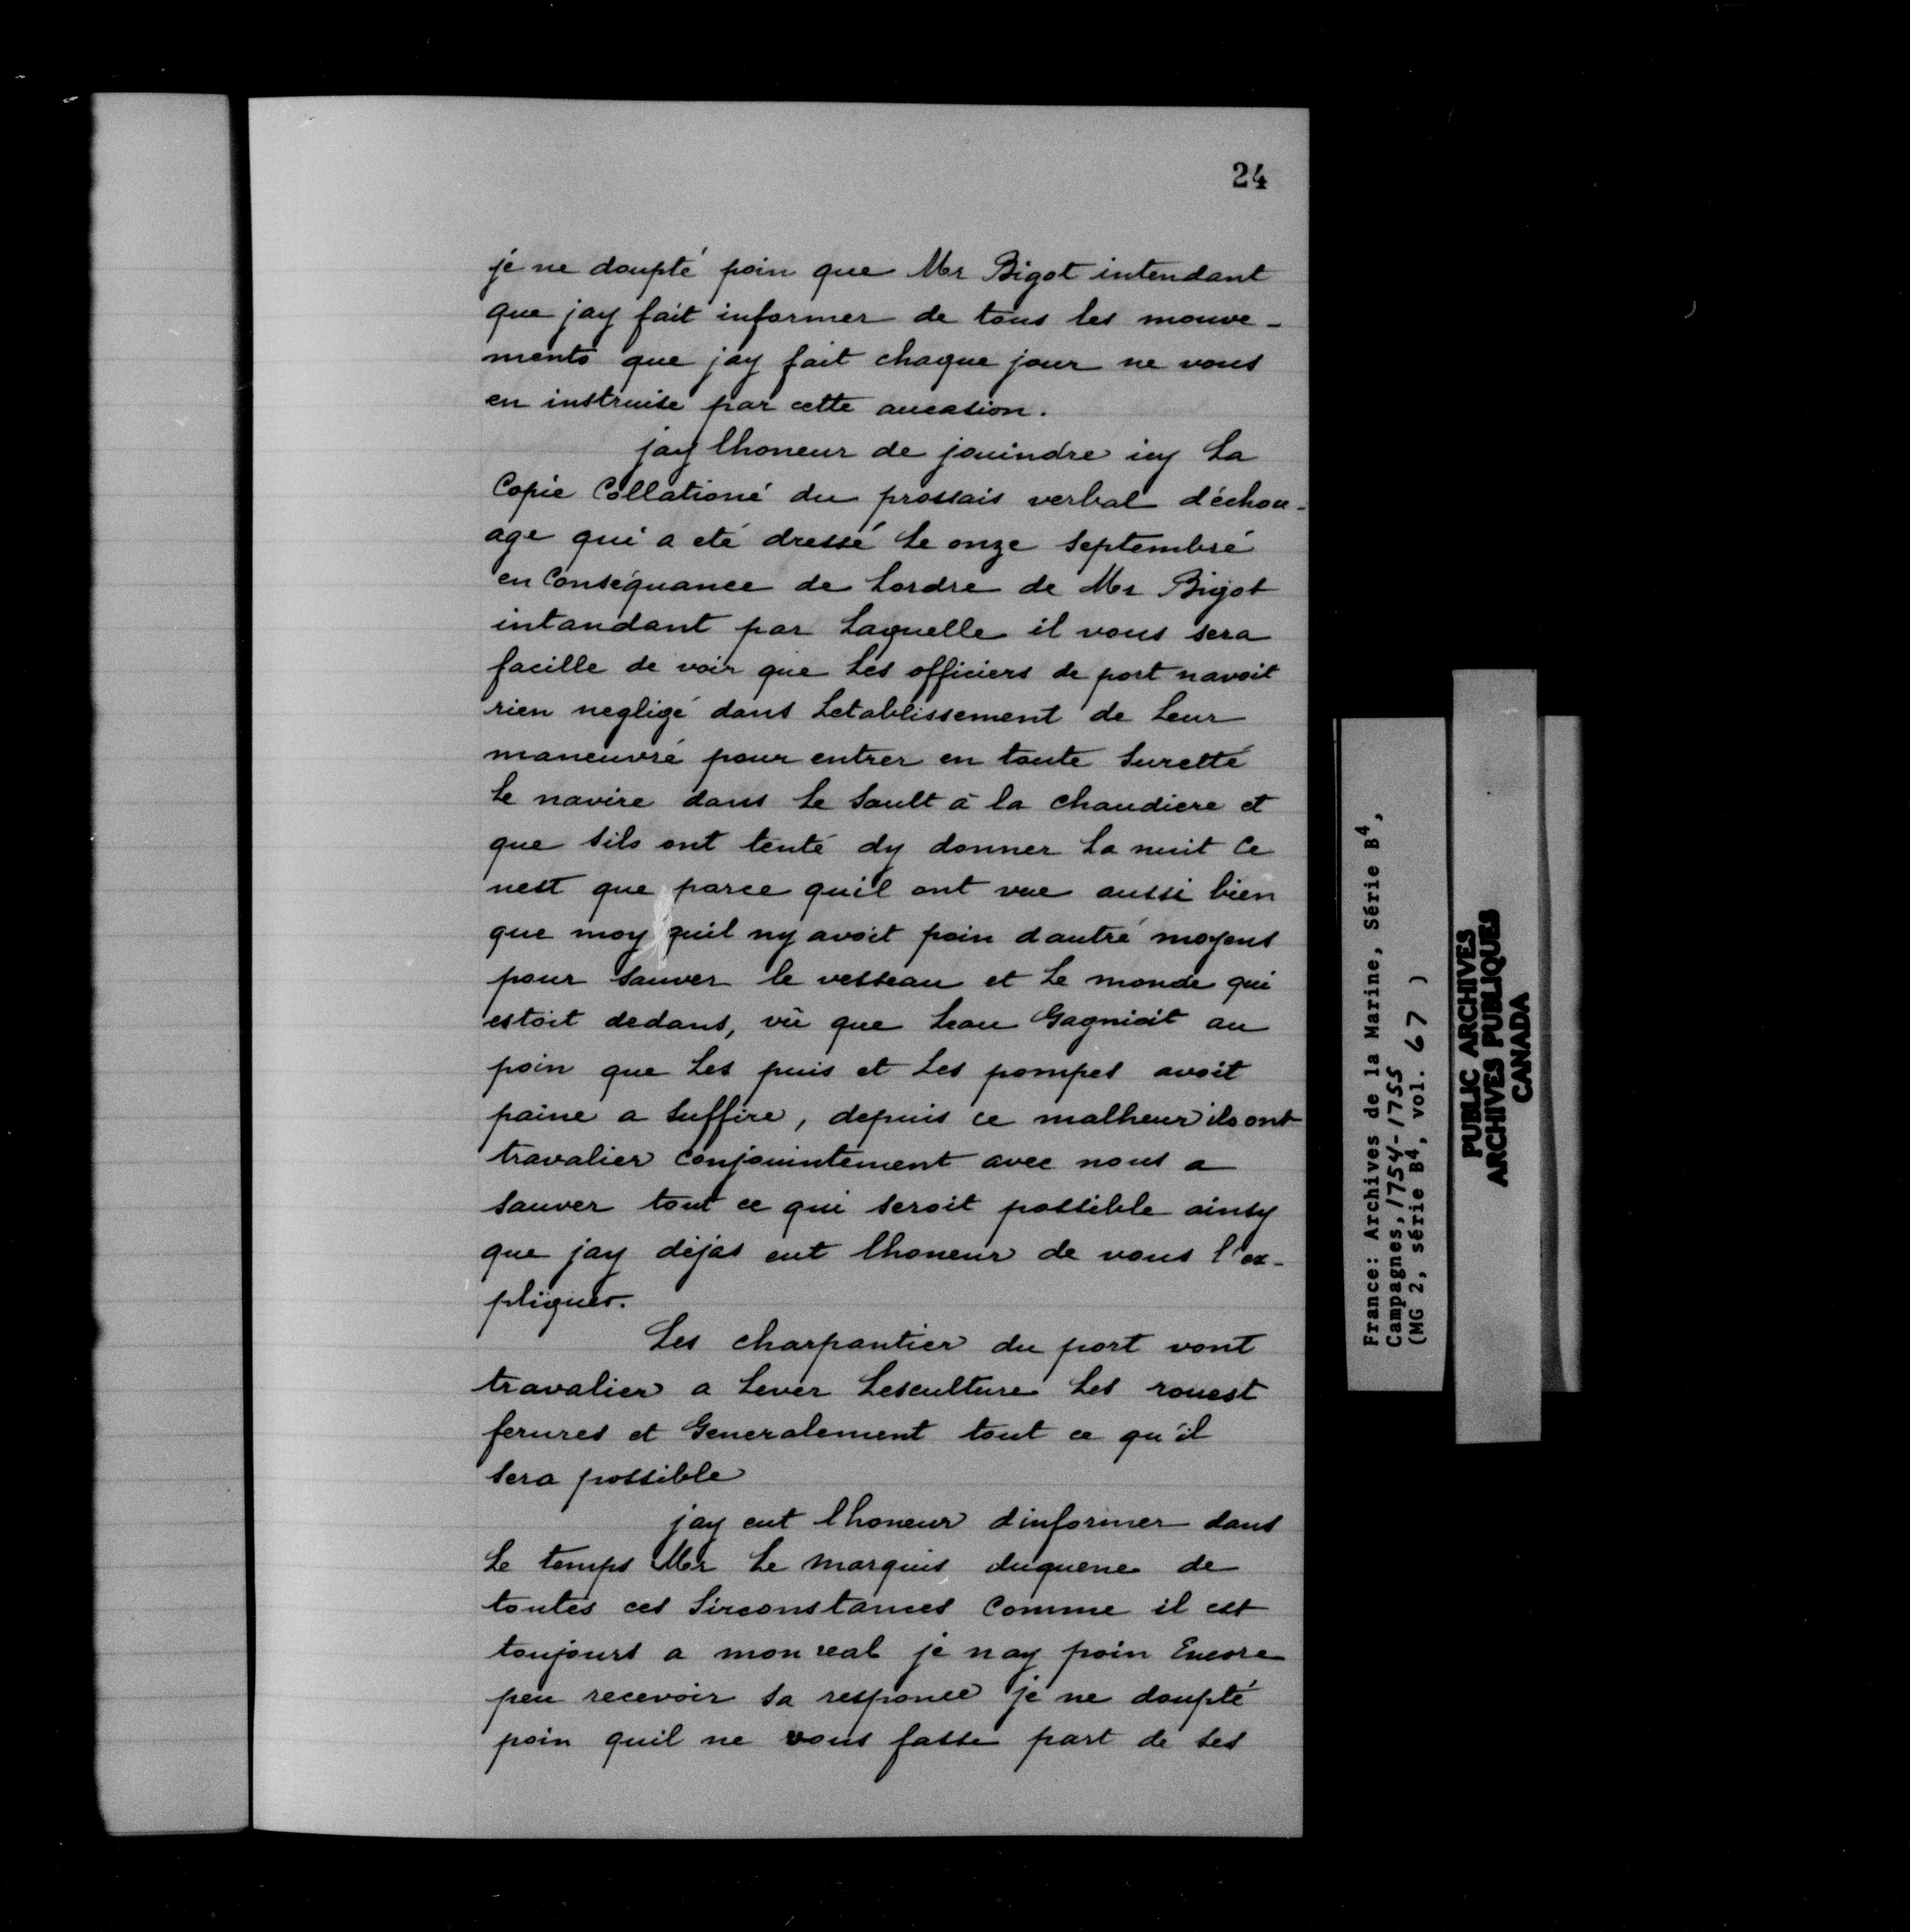 24
je ne doupté poin que Mr Bigot intendant
que jay fait informer de tous les mouve-
ments que jay fait chaque jour ne vous
en instruise par cette aucasion.
jay lhoneur de jouindre icy La
Copie Collationé du prossais verbal d'échou-
age qui a eté dressé Le onze Septembré
en Conséquance de Lordre de Mr Bigot
intandant par Laquelle il vous sera
facille de voir que Les officiers de port navoit
rien negligé dans Letablissement de Leur
maneuvré pour entrer en toute Suretté
Le navire dans Le Sault à la chaudiere et
que Sils ont tenté dy donner La nuit Ce
nest que parce quil ont vue aussi bien
que moy quil ny avoit poin dautré moyens
pour Sauver le vesseau et Le monde qui
estoit dedans, vû que Leau Gagnioit au
poin que Les puis et Les pompes avoit
paine a Suffire, depuis ce malheur ils ont
travalier Conjouintement avec nous a
sauver tout ce qui seroit possible ainsy
que jay déjas eut lhoneur de vous l'ex-
pliquer.
Les charpantier du port vont
travalier a Lever Lesculture Les rouest
ferures et Generalement tout ce qu'il
Sera possible
jay eut lhoneur dinformer dans
Le temps Mr Le marquis duquene de
toutes ces Sirconstances Comme il est
toujours a mon real je nay poin Encore
peu recevoir Sa responce je ne doupté
poin quil ne vous fasse part de ses
France: Archives de la Marine, Série B4,
Campagnes, 1754-1755
(MG 2, série B4, vol. 67 )
PUBLIC ARCHIVES
ARCHIVES PUBLIQUES
CANADA